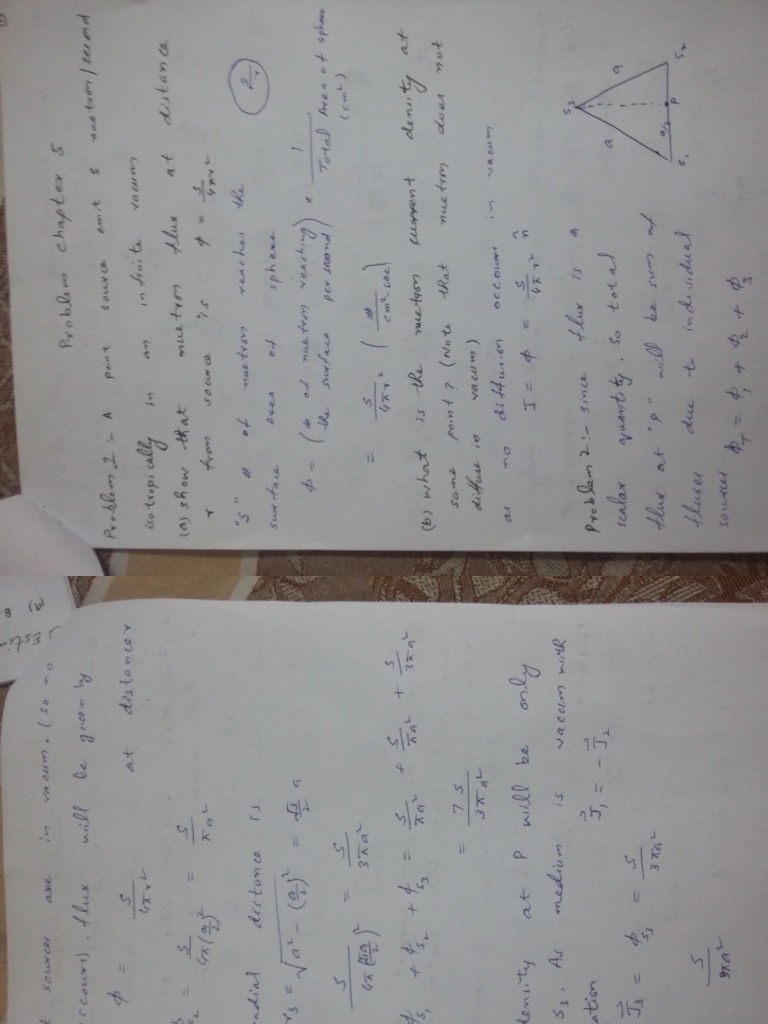 Problem chapter 5
Problem 1 :- A point source emit S nuetron/second
isotropically in an infinite vacum
(a) show that nuetron flux at distance
r from source is ϕ = S/4πr²
"S" # of nuetron reaches the
surface area of sphere
ϕ = (# of nuetron reaching the surface per second) × 1/Total Area of sphere (cm²)
= S/4πr² (#/cm² sec)
(b) what is the nuetron current density at
same point? (Note that nuetron does not
diffuse in vacum)
as no diffution occours in vacum
J = ϕ = S/4πr² n̂
Problem 2 :- since flux is a
scalar quantity. So total
flux at "P" will be sum of
fluxes due to individual
sources ϕT = ϕ1 + ϕ2 + ϕ3
S3
a
a
a/2
S1
P
S2
sources are in vacum. (so no
occours). flux will be given by
ϕ = S/4πr² at distance r
S2 = S/4π(a/2)² = S/πa²
distance is
r3 = √(a² - (a/2)²) = √3/2 a
S/4π(√3a/2)² = S/3πa²
S1 + ϕS2 + ϕS3 = S/πa² + S/πa² + S/3πa²
= 7S/3πa²
density at P will be only
S3. As medium is vacum with
J⃗1 = -J⃗2
J⃗3 = ϕS3 = S/3πa²